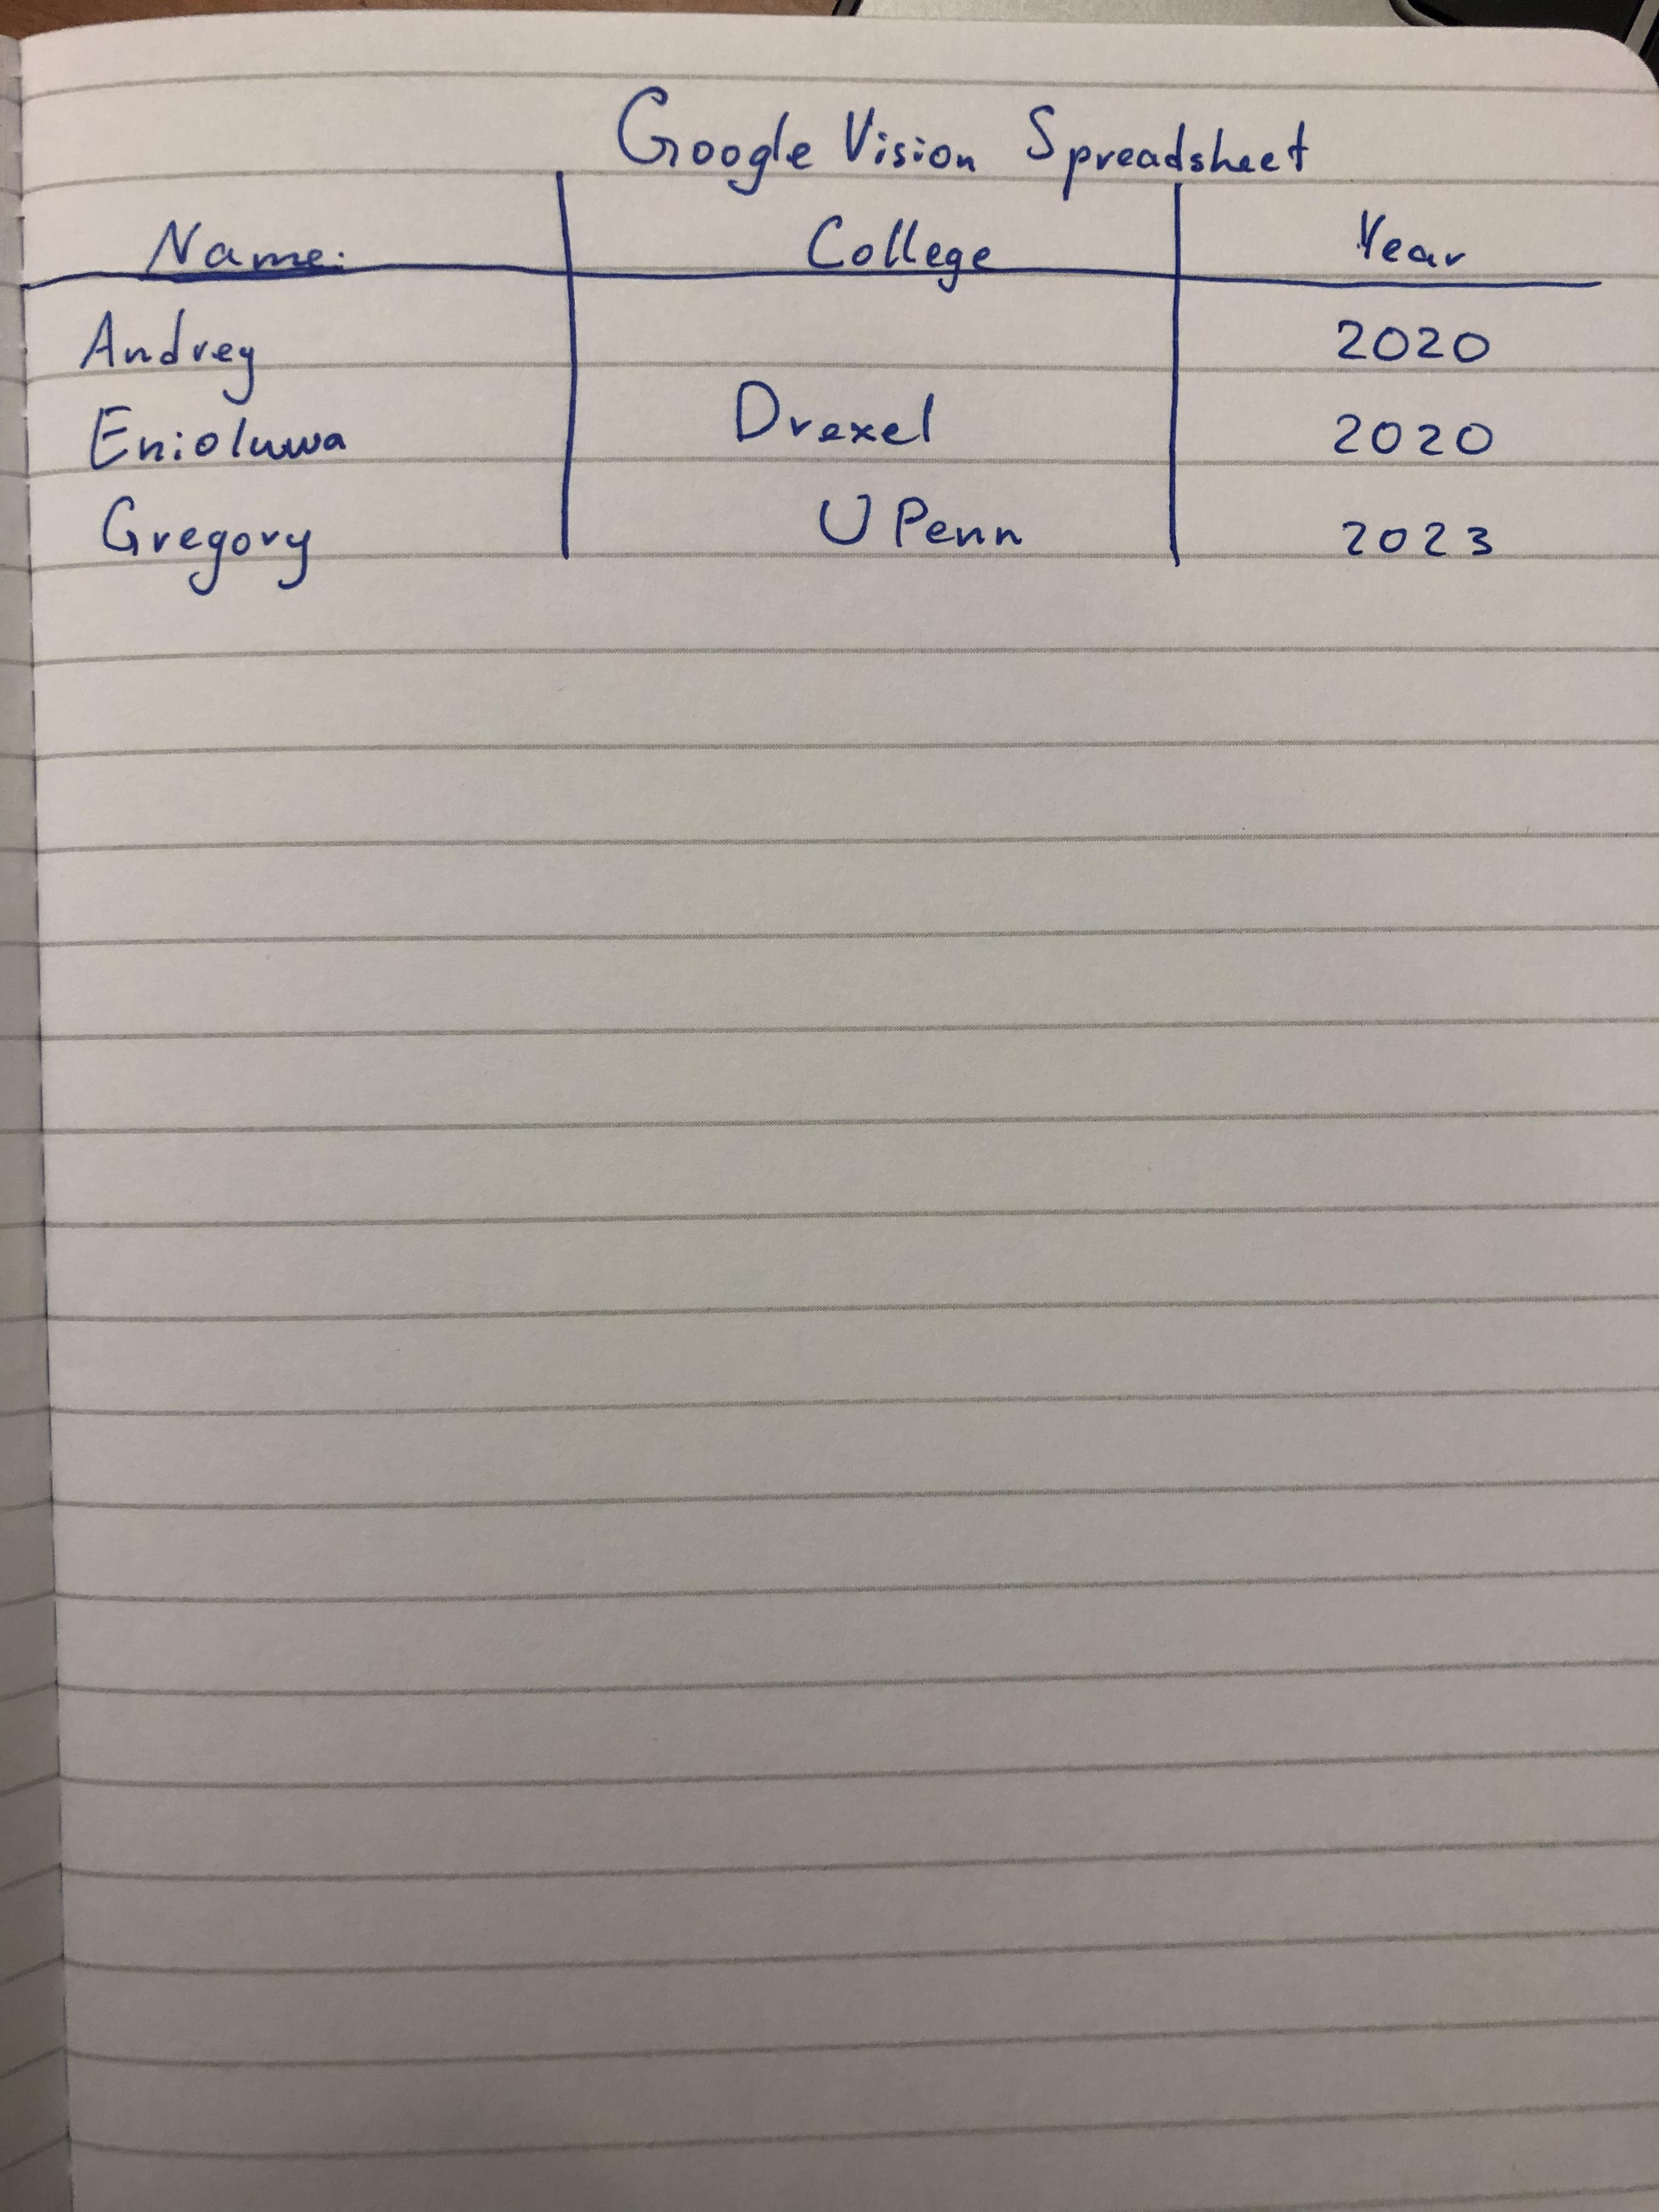 Google Vision Spreadsheet
Name: College Year
Andrey 2020
Enioluwa Drexel 2020
Gregory UPenn 2023